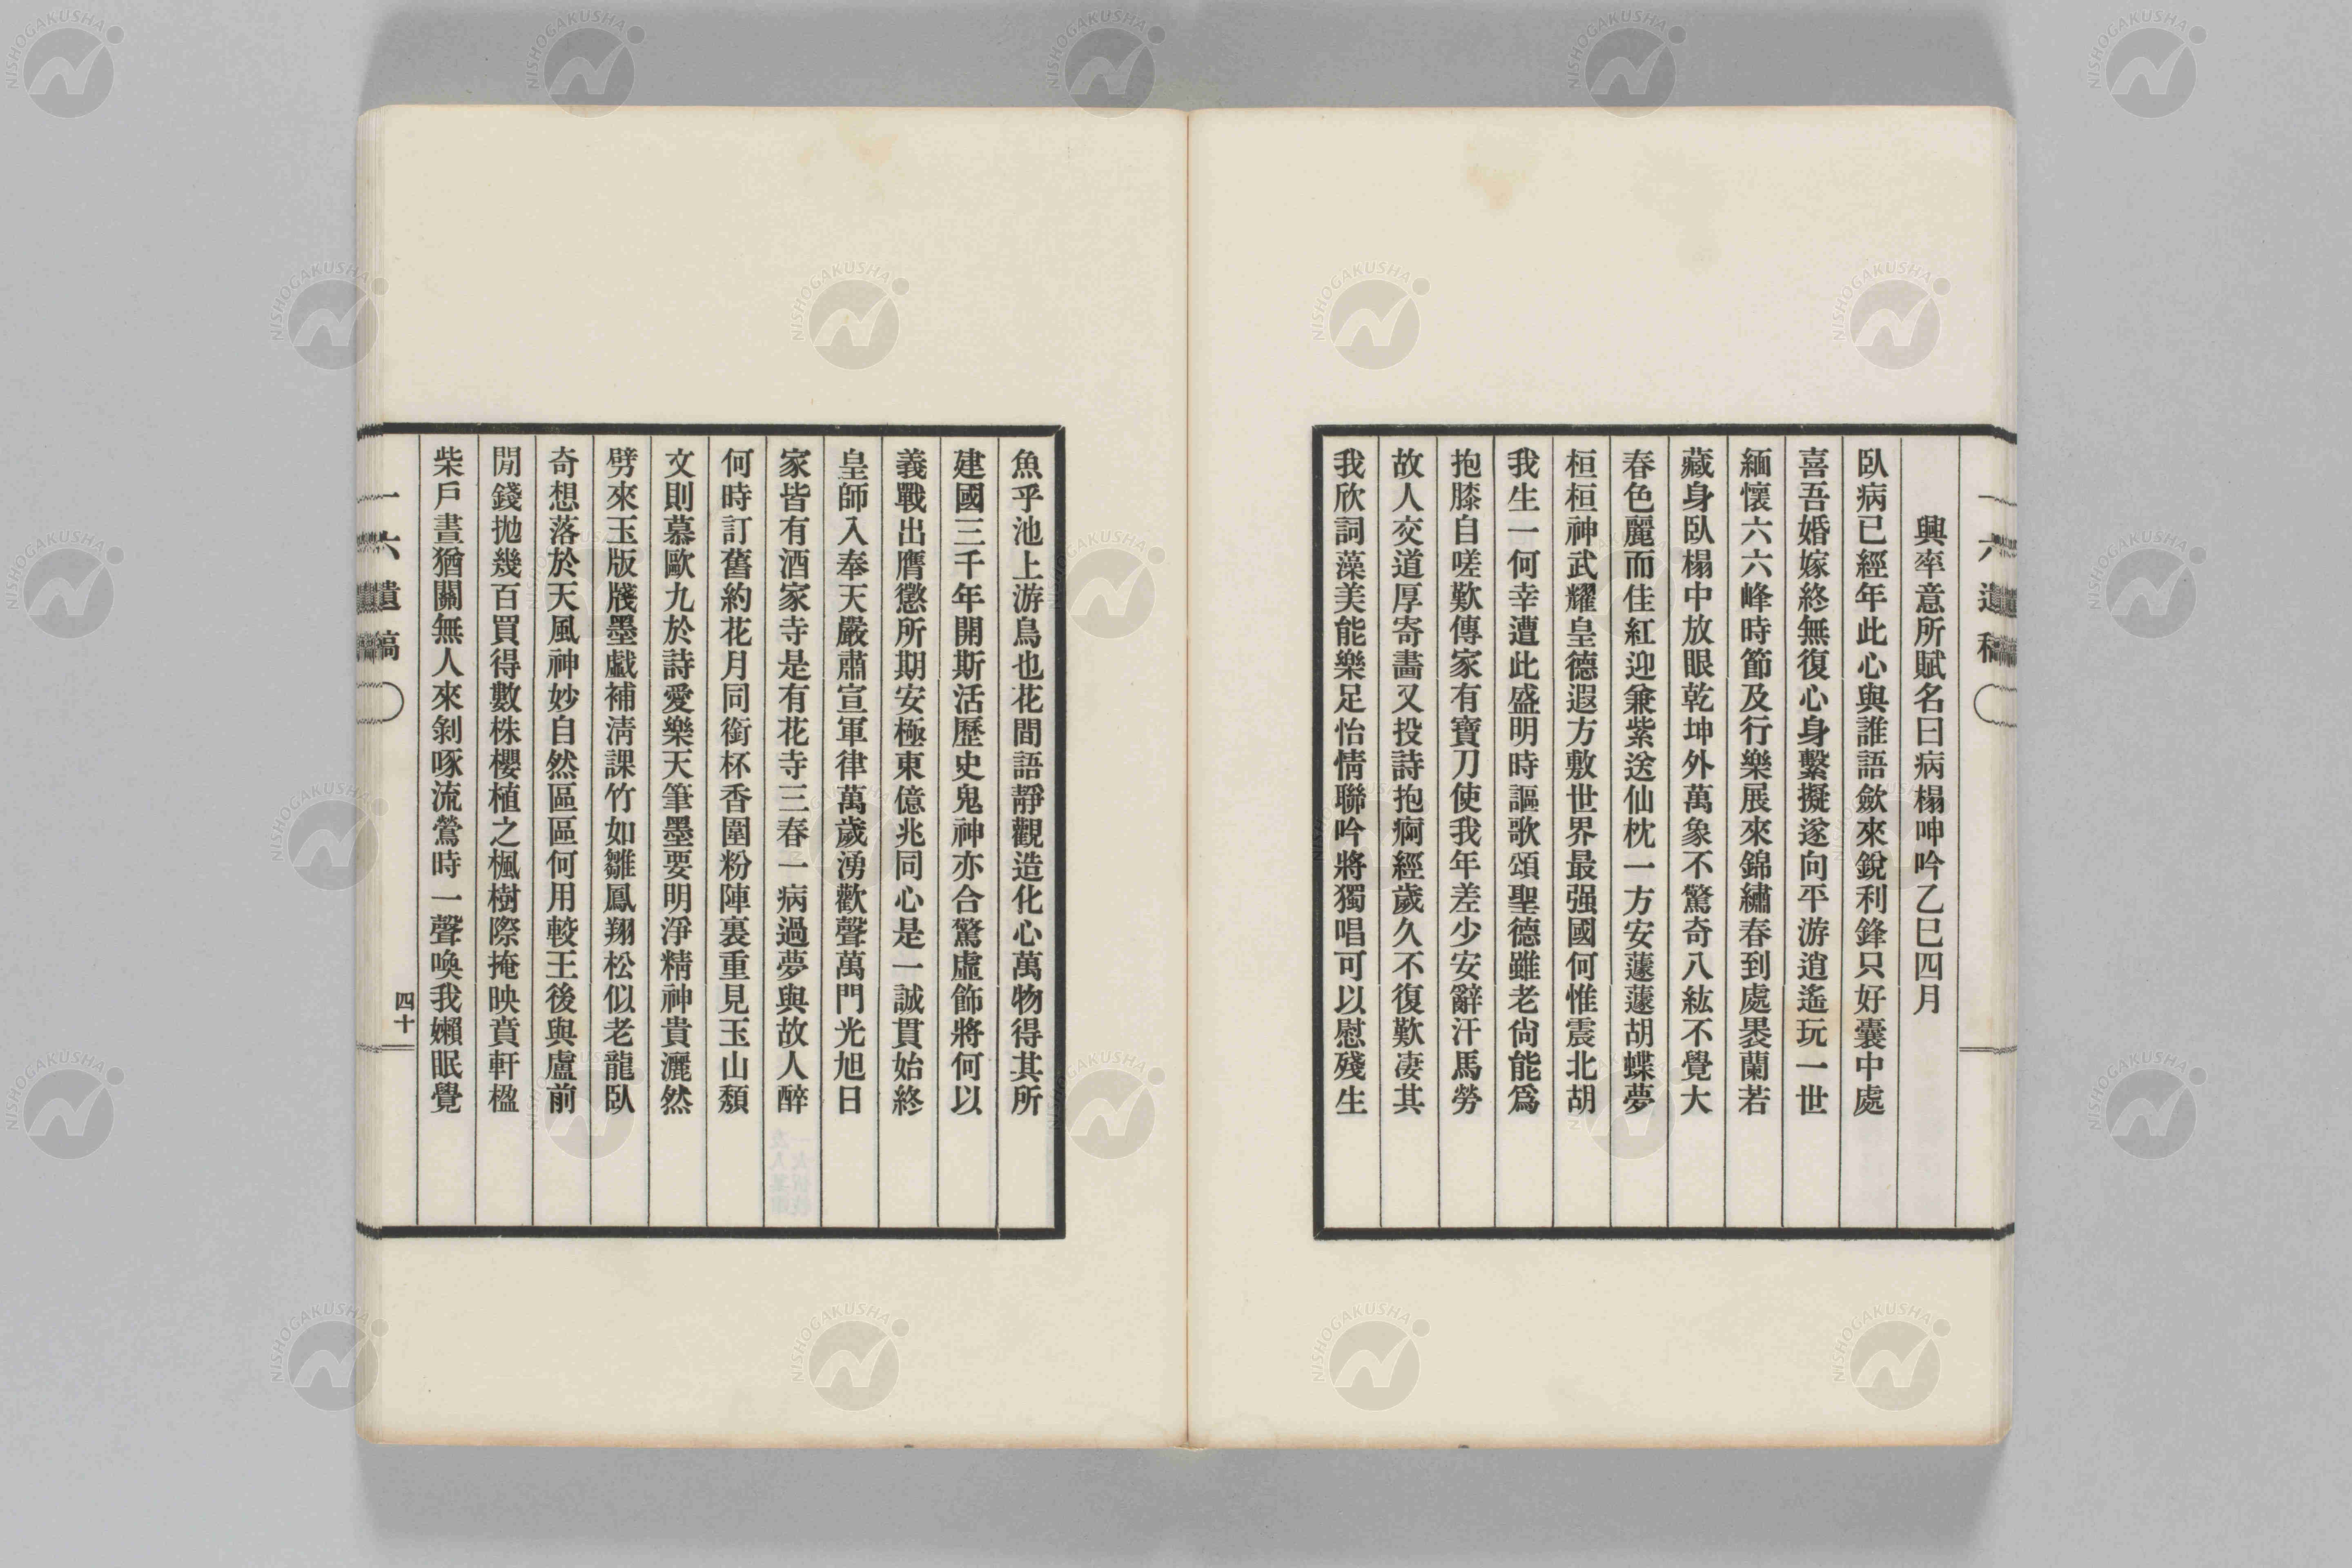 一六遺稿
興率意所賦名曰病榻呻吟乙巳四月
臥病已經年此心與誰語斂來銳利鋒只好囊中處
喜吾婚嫁終無復心身繫擬遂向平游逍遙玩一世
緬懷六六峰時節及行樂展來錦繡春到處褁蘭若
藏身臥榻中放眼乾坤外萬象不驚奇八紘不覺大
春色麗而佳紅迎兼紫送仙枕一方安蘧蘧胡蝶夢
桓桓神武耀皇德遐方敷世界最强國何惟震北胡
我生一何幸遭此盛明時謳歌頌聖德雖老尙能爲
抱膝自嗟歎傳家有寶刀使我年差少安辭汗馬勞
故人交道厚寄畵又投詩抱痾經歲久不復歎凄其
我欣詞藻美能樂足怡情聯吟將獨唱可以慰殘生
魚乎池上游鳥也花間語靜觀造化心萬物得其所
建國三千年開斯活歷史鬼神亦合驚虛飾將何以
義戰出膺懲所期安極東億兆同心是一誠貫始終
皇師入奉天嚴肅宣軍律萬歲湧歡聲萬門光旭日
家皆有酒家寺是有花寺三春一病過夢與故人醉
何時訂舊約花月同銜杯香圍粉陣裏重見玉山頹
文則慕歐九於詩愛樂天筆墨要明淨精神貴灑然
劈來玉版牋墨戲補淸課竹如雛鳳翔松似老龍臥
奇想落於天風神妙自然區區何用較王後與盧前
閒錢抛幾百買得數株櫻植之楓樹際掩映賁軒楹
柴戶晝猶關無人來剝啄流鶯時一聲喚我嬾眠覺
一六遺稿
四十
NISHOGAKUSHA